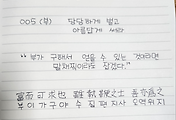 005 (부) 당당하게 벌고
아름답게 써라
"부가 구해서 얻을 수 있는 것이라면
말채찍이라도 잡겠다."
富而可求也 雖執鞭之士 吾亦爲之
부이가구야 수집편지사 오역위지